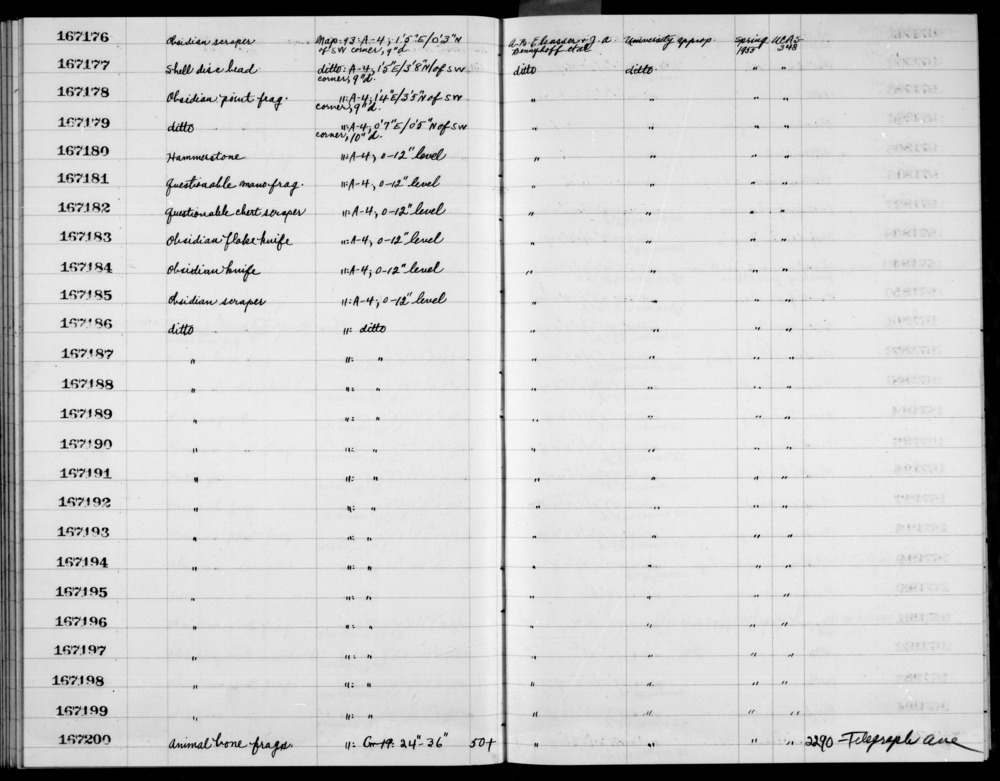 167176 Obsidian scraper Map: 93: A-4; 1'5"E/0'3"N of SW corner, 9"d. A.B. Elsasser & J.A. Bennyhoff et al University approp. Spring 1955 UCAS 348
167177 Shell disc bead ditto: A-4; 1'5"E/3'8"N/of SW corner, 9"d. ditto ditto " "
167178 Obsidian point frag. ": A-4; 1'4"E/3'5"N of SW corner, 9"d. " " " "
167179 ditto ": A-4, 0'7"E/0'5"N of SW corner, 10"d. " " " "
167180 Hammerstone ": A-4; 0-12" level " " " "
167181 Questionable mano frag. ": A-4; 0-12" level " " " "
167182 Questionable chert scraper ": A-4; 0-12" level " " " "
167183 Obsidian flake knife ": A-4; 0-12" level " " " "
167184 Obsidian knife ": A-4; 0-12" level " " " "
167185 Obsidian scraper ": A-4; 0-12" level " " " "
167186 ditto ": ditto " " " "
167187 " ": " " " " "
167188 " ": " " " " "
167189 " ": " " " " "
167190 " ": " " " " "
167191 " ": " " " " "
167192 " ": " " " " "
167193 " ": " " " " "
167194 " ": " " " " "
167195 " ": " " " " "
167196 " ": " " " " "
167197 " ": " " " " "
167198 " ": " " " " "
167199 " ": " " " " "
167200 Animal bone frags. ": 24"-36" 50+ " " " " 2290-Telegraph Ave